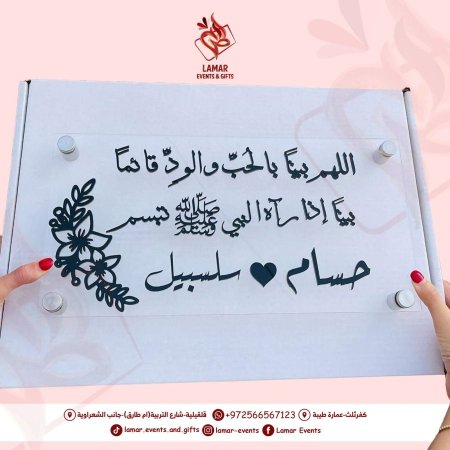 LAMAR
EVENTS & GIFTS
اللهم بيتًا بالحُبّ والودِّ قائمًا
بيتًا إذا رآه النبي ﷺ تبسم
حسام ♥ سلسبيل
كفرثلث-عمارة طيبة قلقيلية-شارع التربية(ام طارق)-جانب الشعراوية +972566567123
lamar.events.and.gifts lamar-events Lamar Events